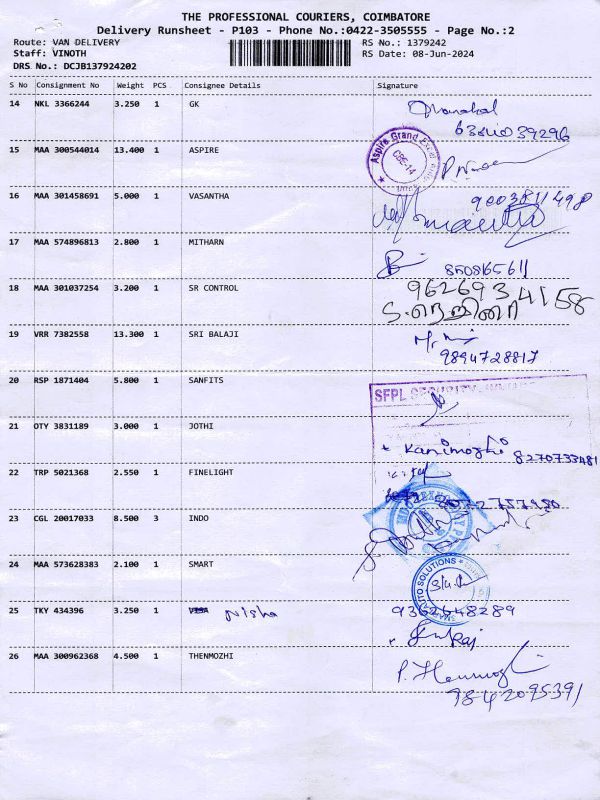 THE PROFESSIONAL COURIERS, COIMBATORE
Delivery Runsheet - P103 - Phone No.:0422-3505555 - Page No.:2
Route: VAN DELIVERY
RS No.: 1379242
Staff: VINOTH
RS Date: 08-Jun-2024
DRS No.: DCJB137924202
S No Consignment No Weight PCS Consignee Details Signature
14 NKL 3366244 3.250 1 GK
15 MAA 300544014 13.400 1 ASPIRE
Aspire Grand
CBE-14
16 MAA 301458691 5.000 1 VASANTHA 9003811498
17 MAA 574896813 2.800 1 MITHARN
18 MAA 301037254 3.200 1 SR CONTROL 9626934158
19 VRR 7382558 13.300 1 SRI BALAJI
9894728817
20 RSP 1871404 5.800 1 SANFITS
SFPL SECURITY
21 OTY 3831189 3.000 1 JOTHI Kanimozhi 8270733481
22 TRP 5021368 2.550 1 FINELIGHT
23 CGL 20017033 8.500 3 INDO
24 MAA 573628383 2.100 1 SMART
AUTO SOLUTIONS
25 TKY 434396 3.250 1 Nisha 9362648289
26 MAA 300962368 4.500 1 THENMOZHI
9842095391